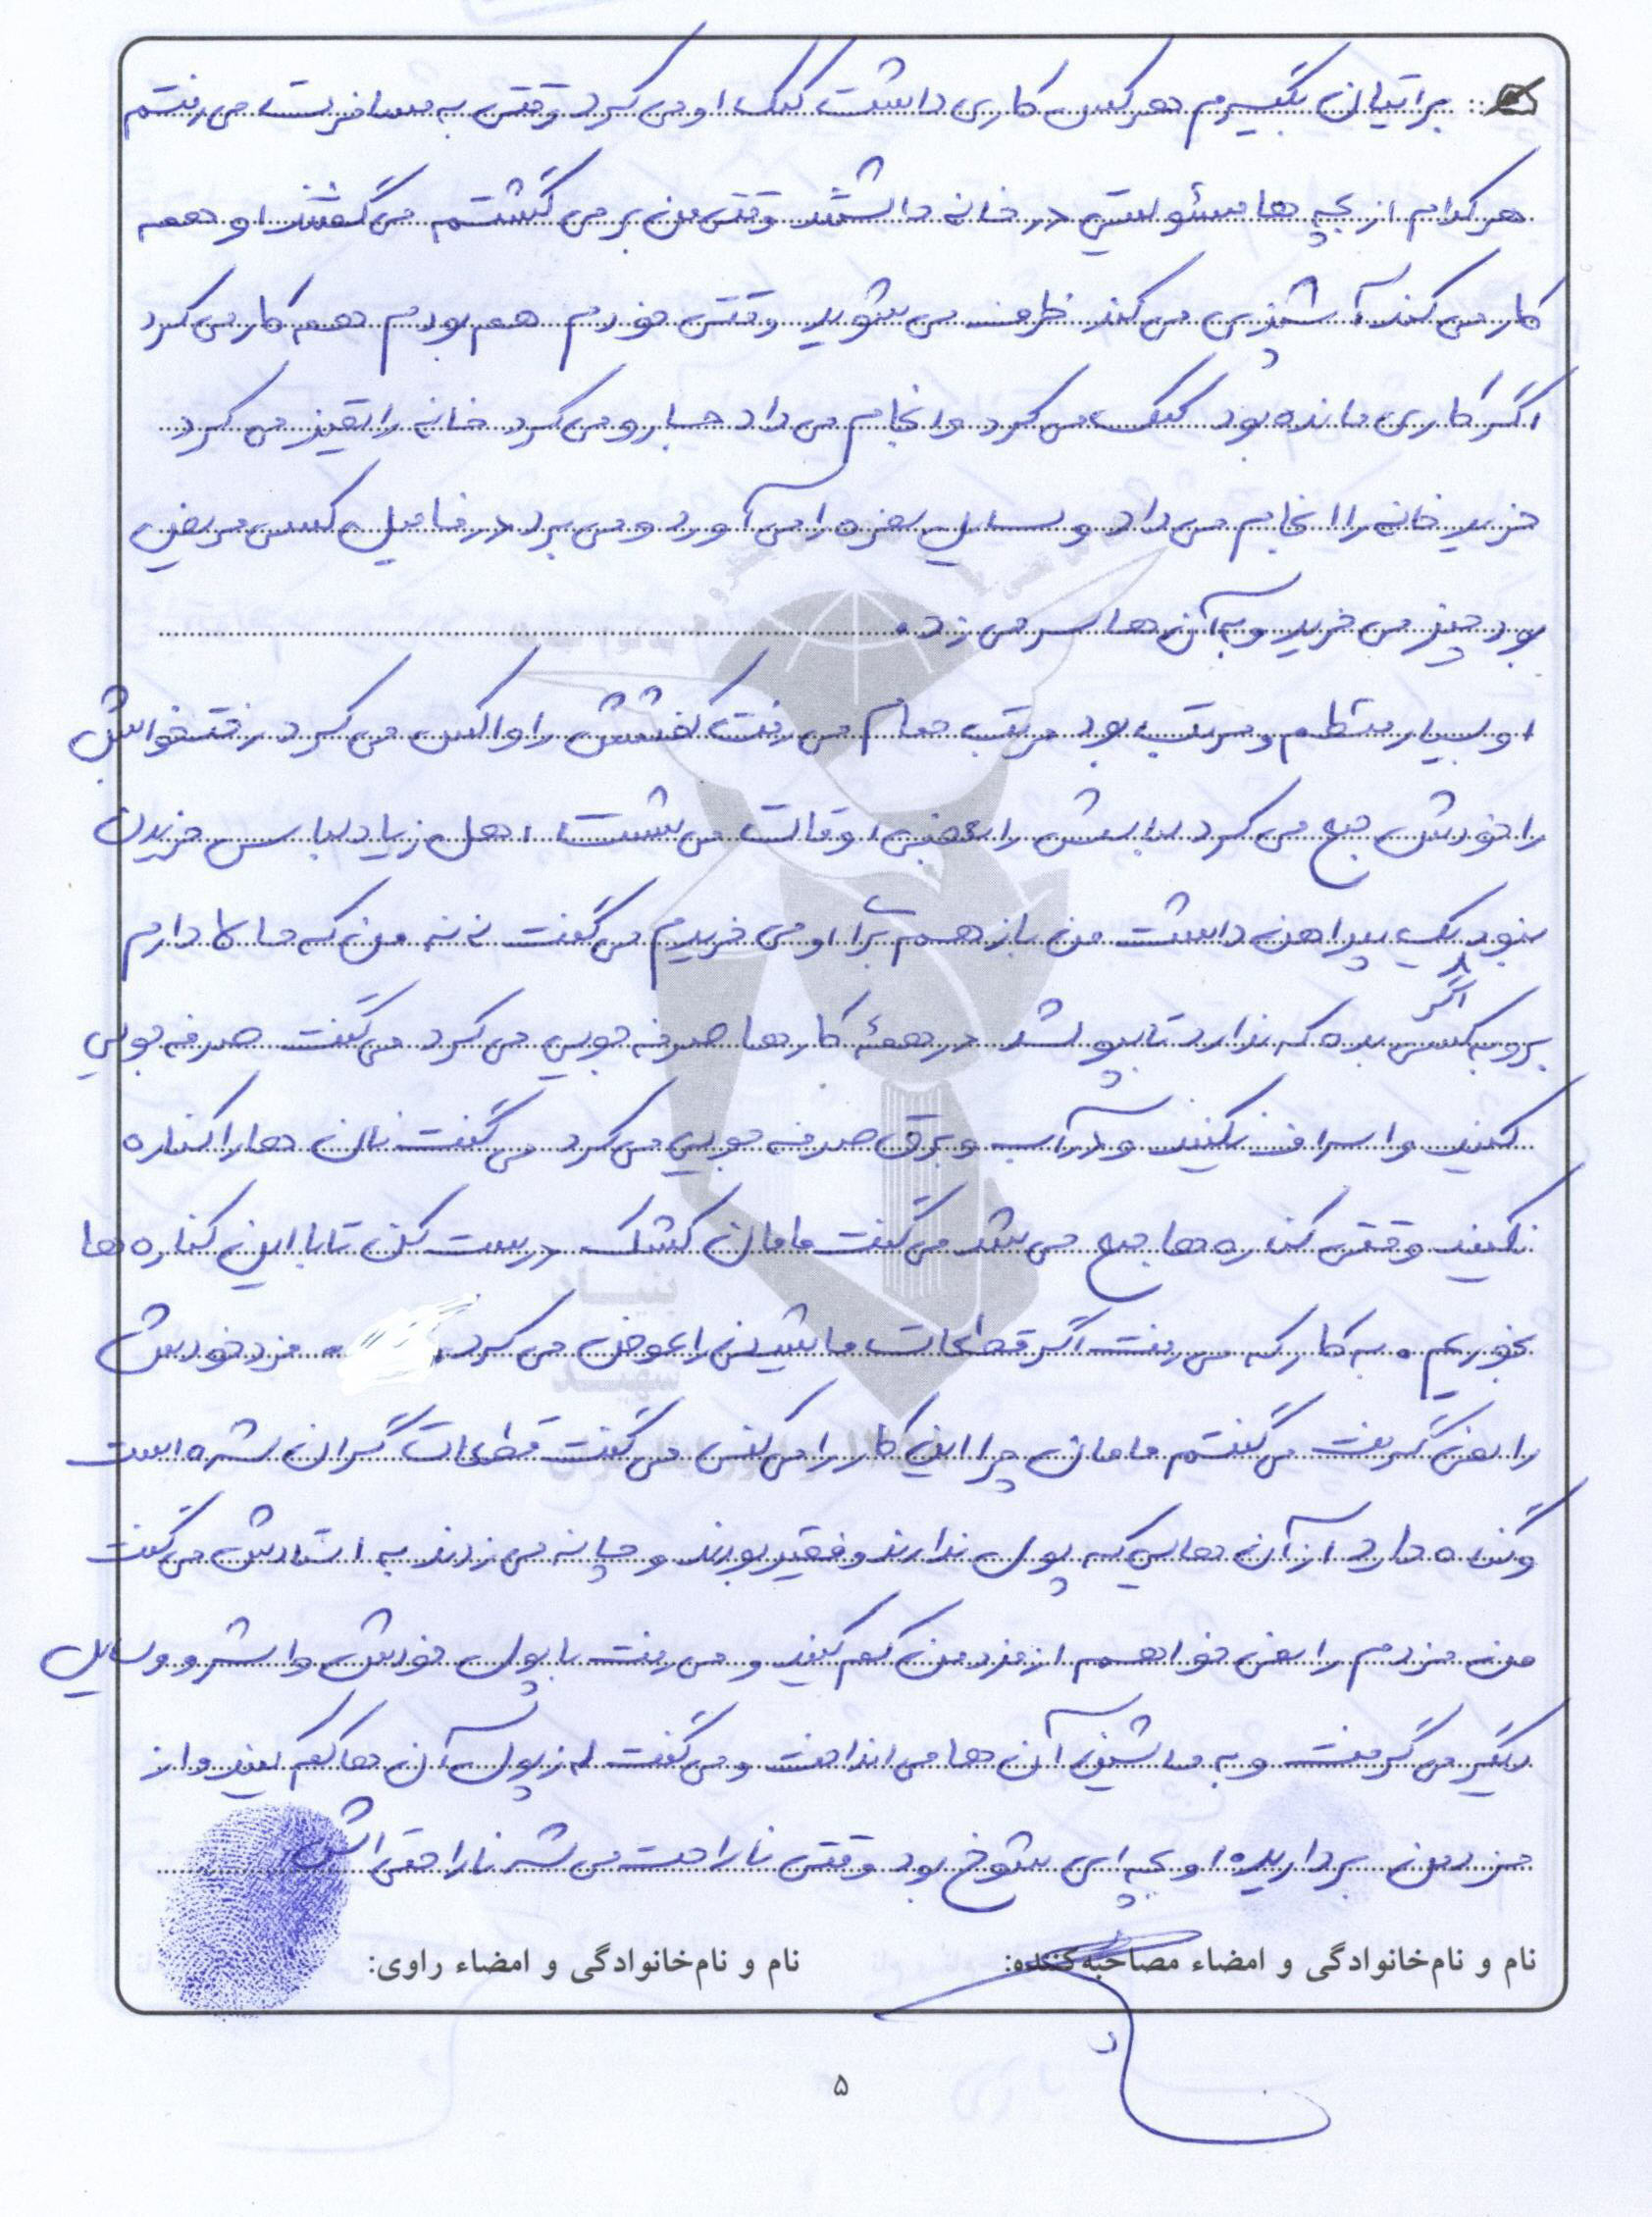 براتیان بگیرم هر کس کاری داشت کمک او می کرد وقتی به مسافرت می رفتم
هر کدام از بچه ها مسئولیتی در خانه داشتند وقتی من بر می گشتم می گفتند او همه
کار می کند آشپزی می کند ظرف می شوید وقتی خودم هم بودم همه کار می کرد
اگر کاری مانده بود کمک می کرد وانجام می داد جارو می کرد خانه را تمیز می کرد
خرید خانه را انجام می داد وسایل سفره را می آورد و می برد در فامیل کسی مریض
بود چیز می خرید و به آن ها سر می زد.
او بسیار منظم و مرتب بود مرتب حمام می رفت کفشش را واکس می کرد رختخوابش
را خودش جمع می کرد لباسش را بعضی اوقات می شست اهل زیاد لباس خریدن
نبود یک پیراهن داشت من باز هم برا او می خریدم می گفت نه نه من که حالا دارم
برو به کسی بده که ندارد تا بپوشد در همهٔ کارها صرفه جویی می کرد می گفت صرفه جویی
اگر
کنید و اسراف نکنید و در آب و برق صرفه جویی می کرد می گفت نان ها را کناره
نکنید وقتی کناره ها جمع می شد می گفت مامان کشک درست کن تا با این کناره ها
بخوریم. به کار که می رفت اگر قطعات ماشین را عوض می کرد مزد خودش
را نمی گرفت می گفتم مامان چرا این کار را می کنی می گفت قطعات گران شده است
و گناه دارد از آن هایی که پول ندارند و فقیر بودند و چانه می زدند به استادش می گفت
من مزدم را نمی خواهم از مزد من کم کنید و می رفت با پول خودش واشر و وسایل
دیگر می گرفت و به ماشین آن ها می انداخت و می گفت از پول آن ها کم کنید و از
مزد من بردارید. او بچه ای شوخ بود وقتی ناراحت می شد ناراحتی اش
نام و نام‌خانوادگی و امضاء مصاحبه‌کننده: نام و نام‌خانوادگی و امضاء راوی:
۵